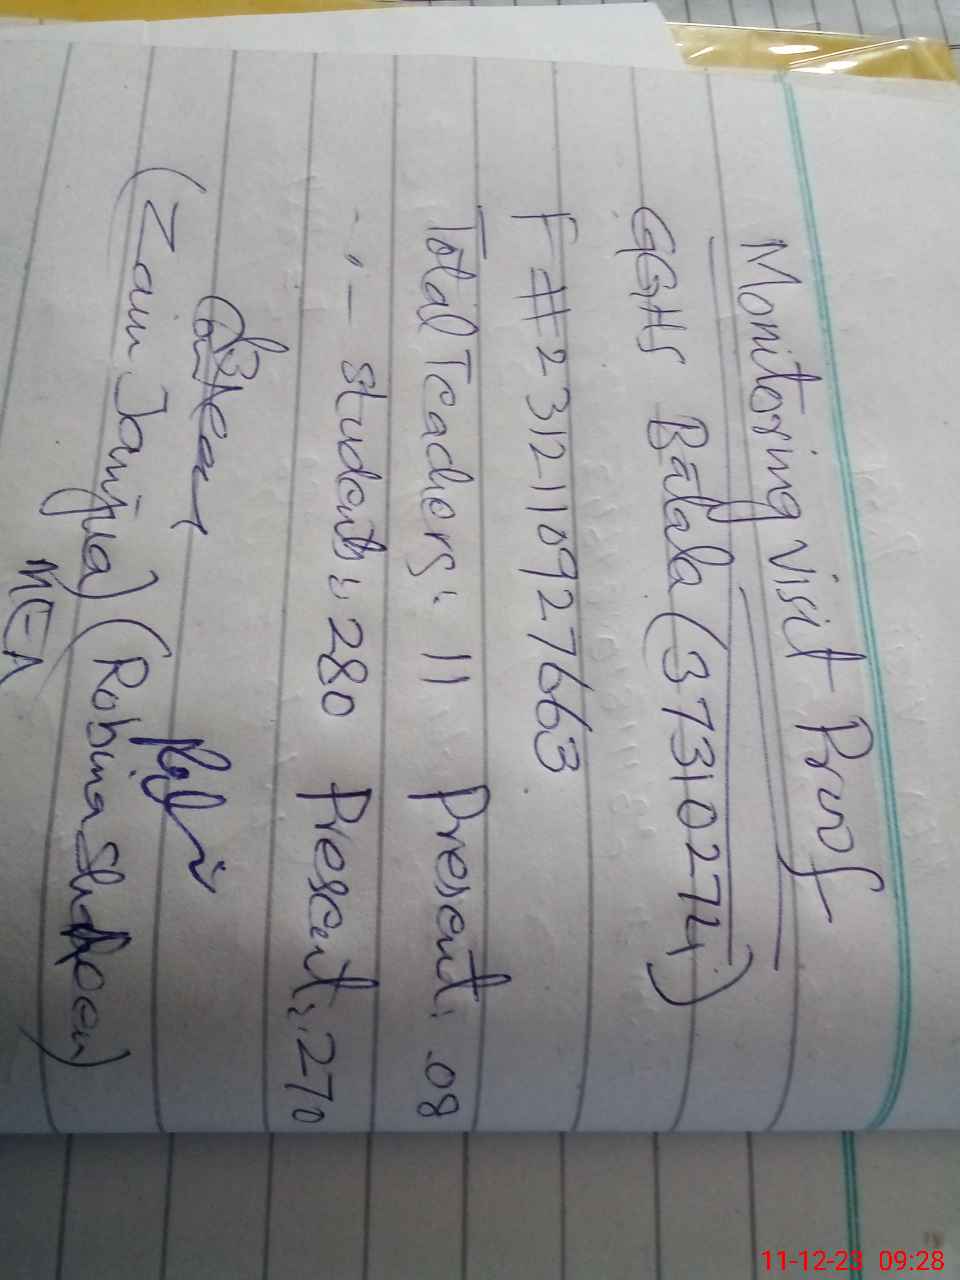 Monitoring visit Proof
GGHS Balala (37310274)
F# 2312110927663
Total Teachers: 11 Present: 08
-,- Students: 280 Present: 270
(Zain Janjua) (Robina Shaheen)
MEA
11-12-23 09:28